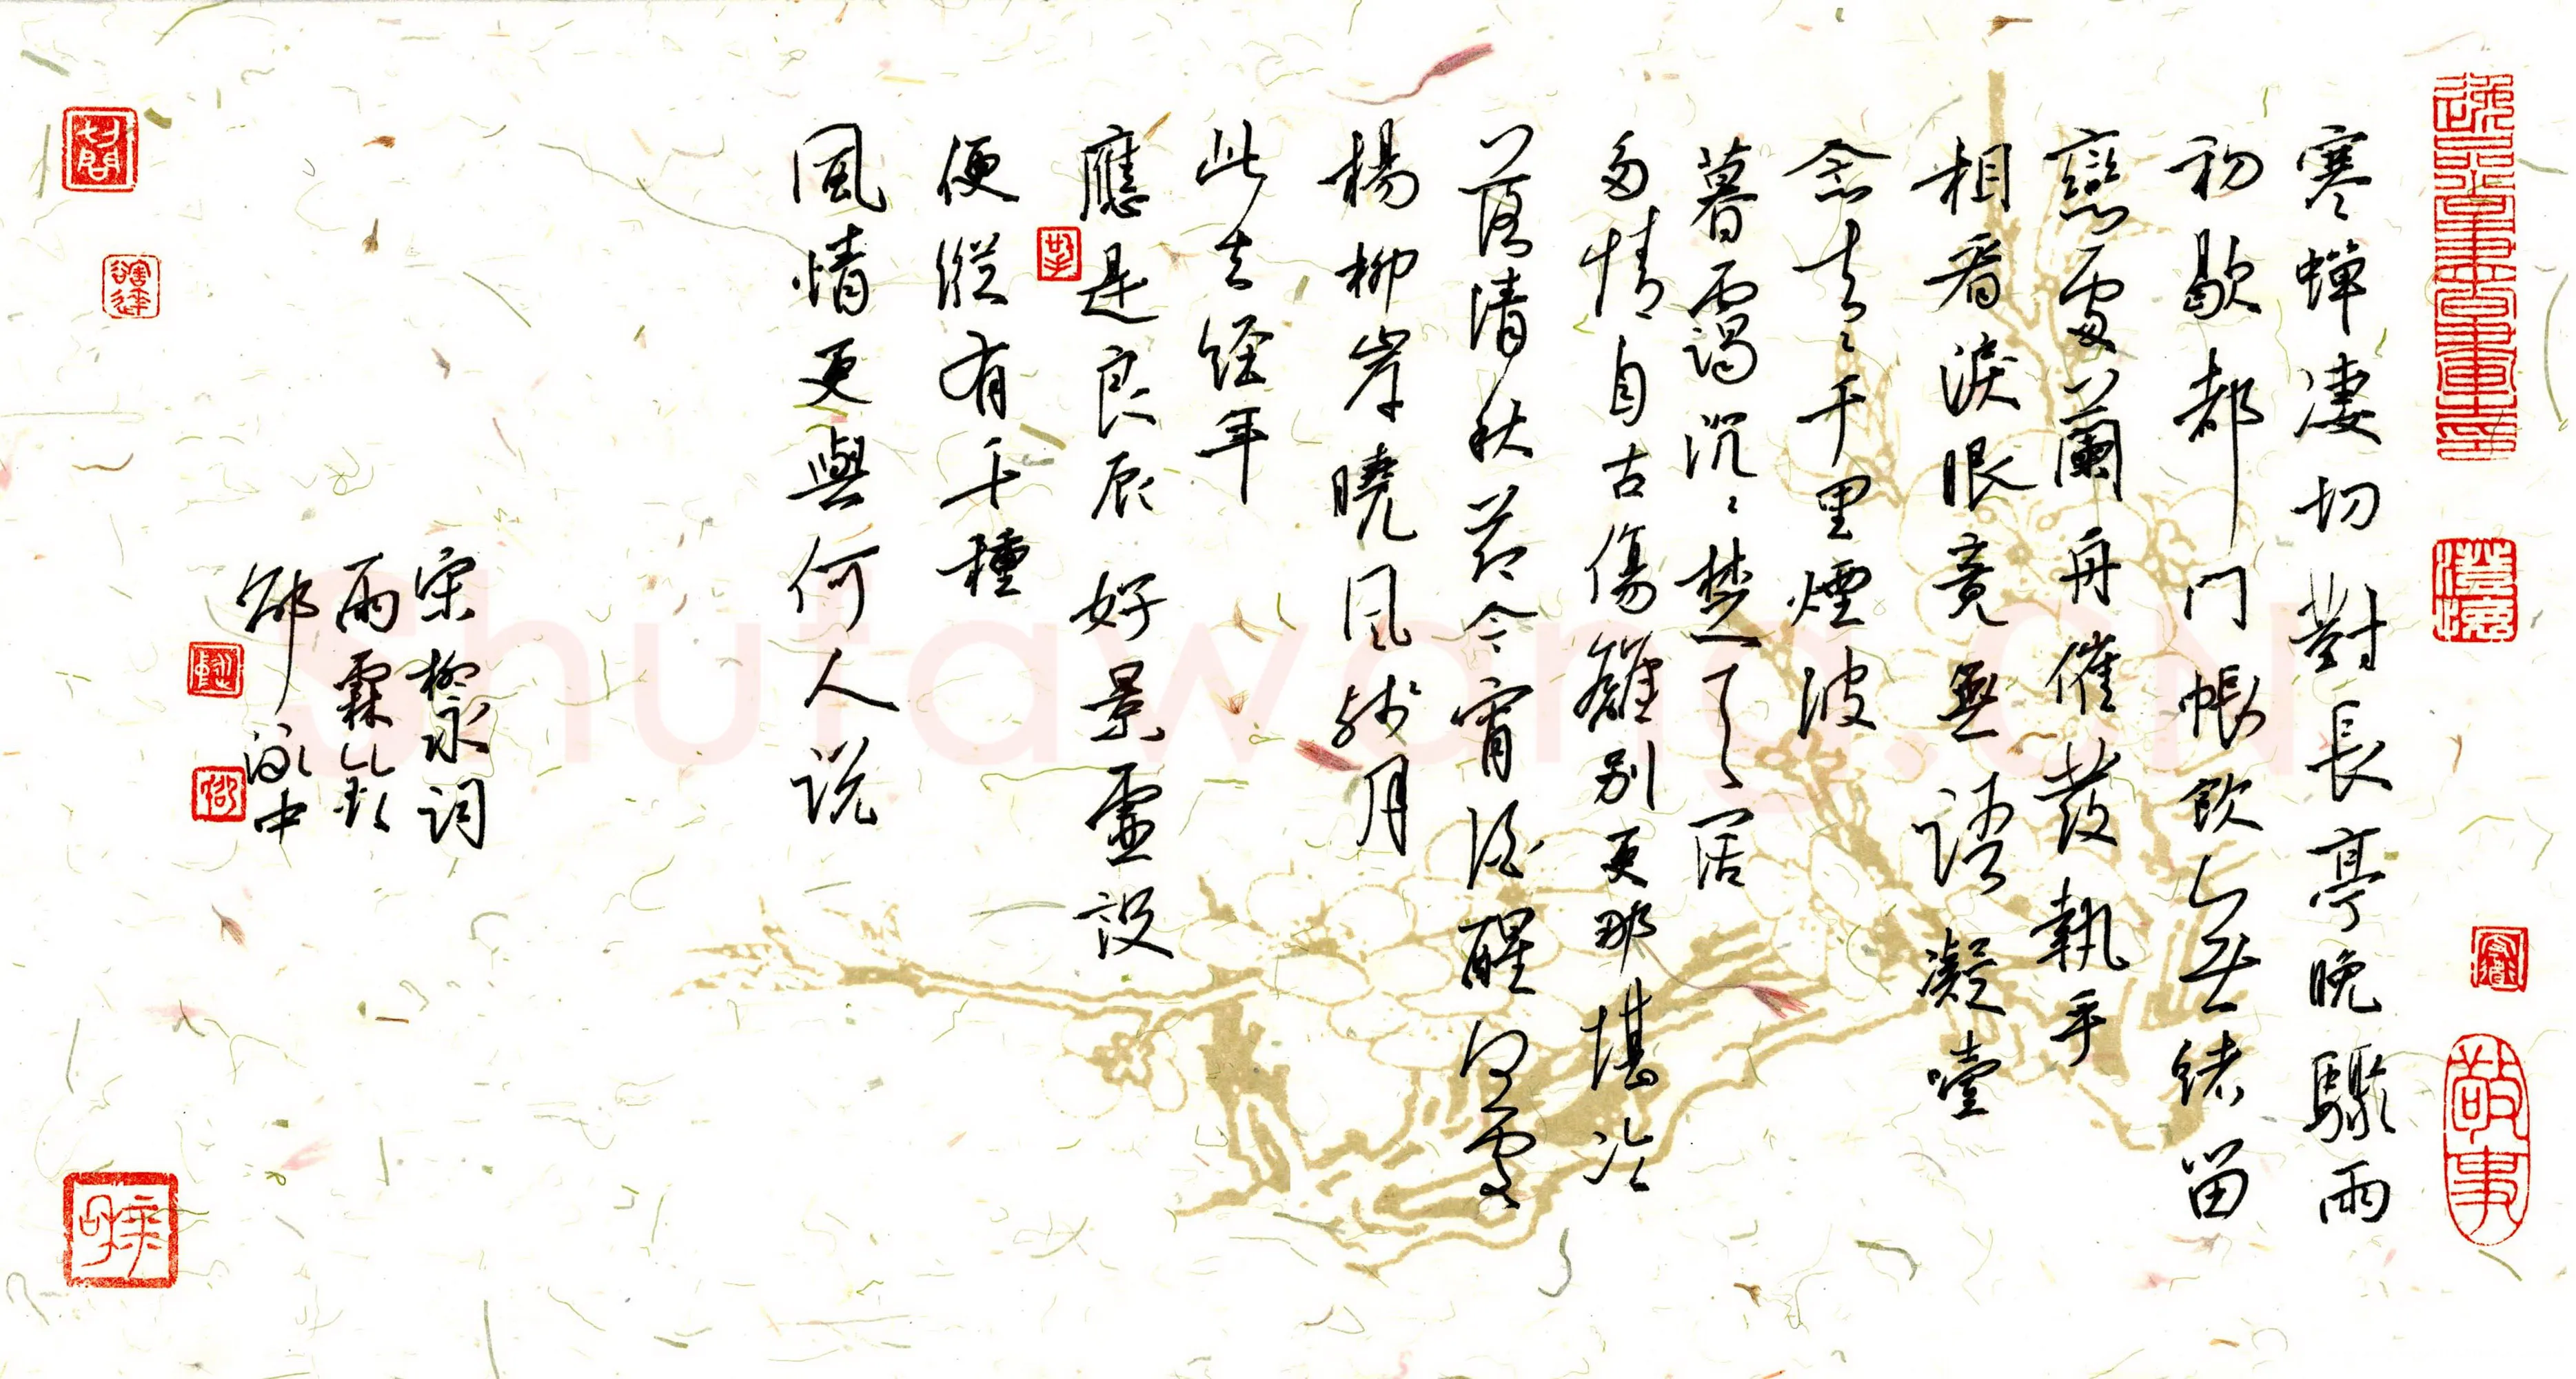 寒蟬淒切對長亭晚驟雨
初歇都门帳飲無緒留
戀處蘭舟催發執手
相看淚眼竟無語凝噎
念去〻千里煙波
暮靄沉〻楚天闊
多情自古傷離別更那堪冷
落清秋節今宵酒醒何處
楊柳岸曉風殘月
此去經年
應是良辰好景虛設
便縱有千種
風情更與何人説
宋柳永詞
雨霖鈴
邰泳中
敬事
Shutawang.CN